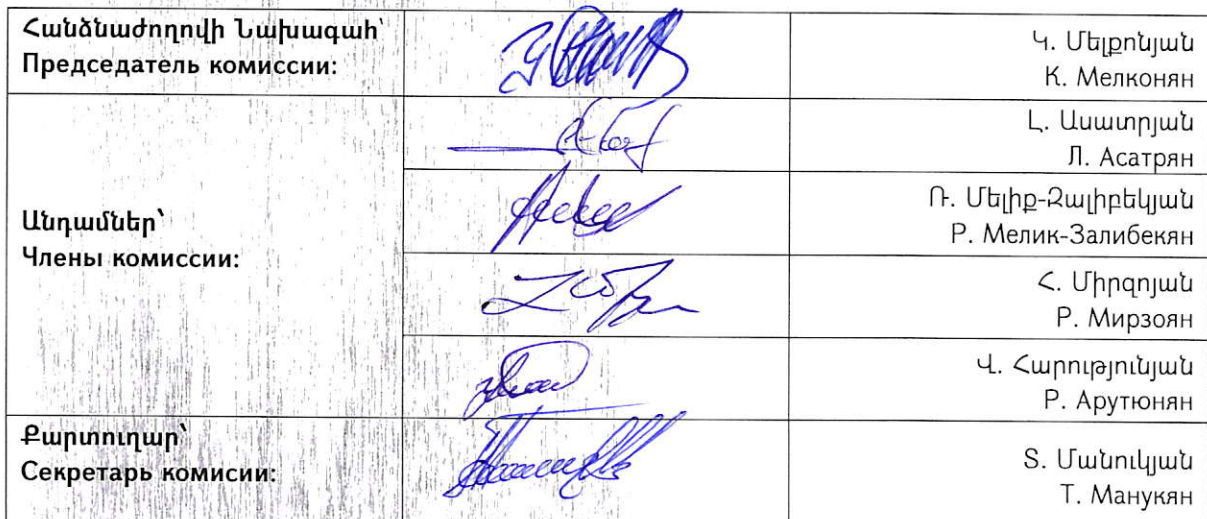 Հանձնաժողովի Նախագահ՝
Председатель комиссии:
Կ. Մելքոնյան
К. Мелконян
Անդամներ՝
Члены комиссии:
Լ. Ասատրյան
Л. Асатрян
Ռ. Մելիք-Զալիբեկյան
Р. Мелик-Залибекян
Հ. Միրզոյան
Р. Мирзоян
Վ. Հարությունյան
Р. Арутюнян
Քարտուղար՝
Секретарь комисии:
Տ. Մանուկյան
Т. Манукян